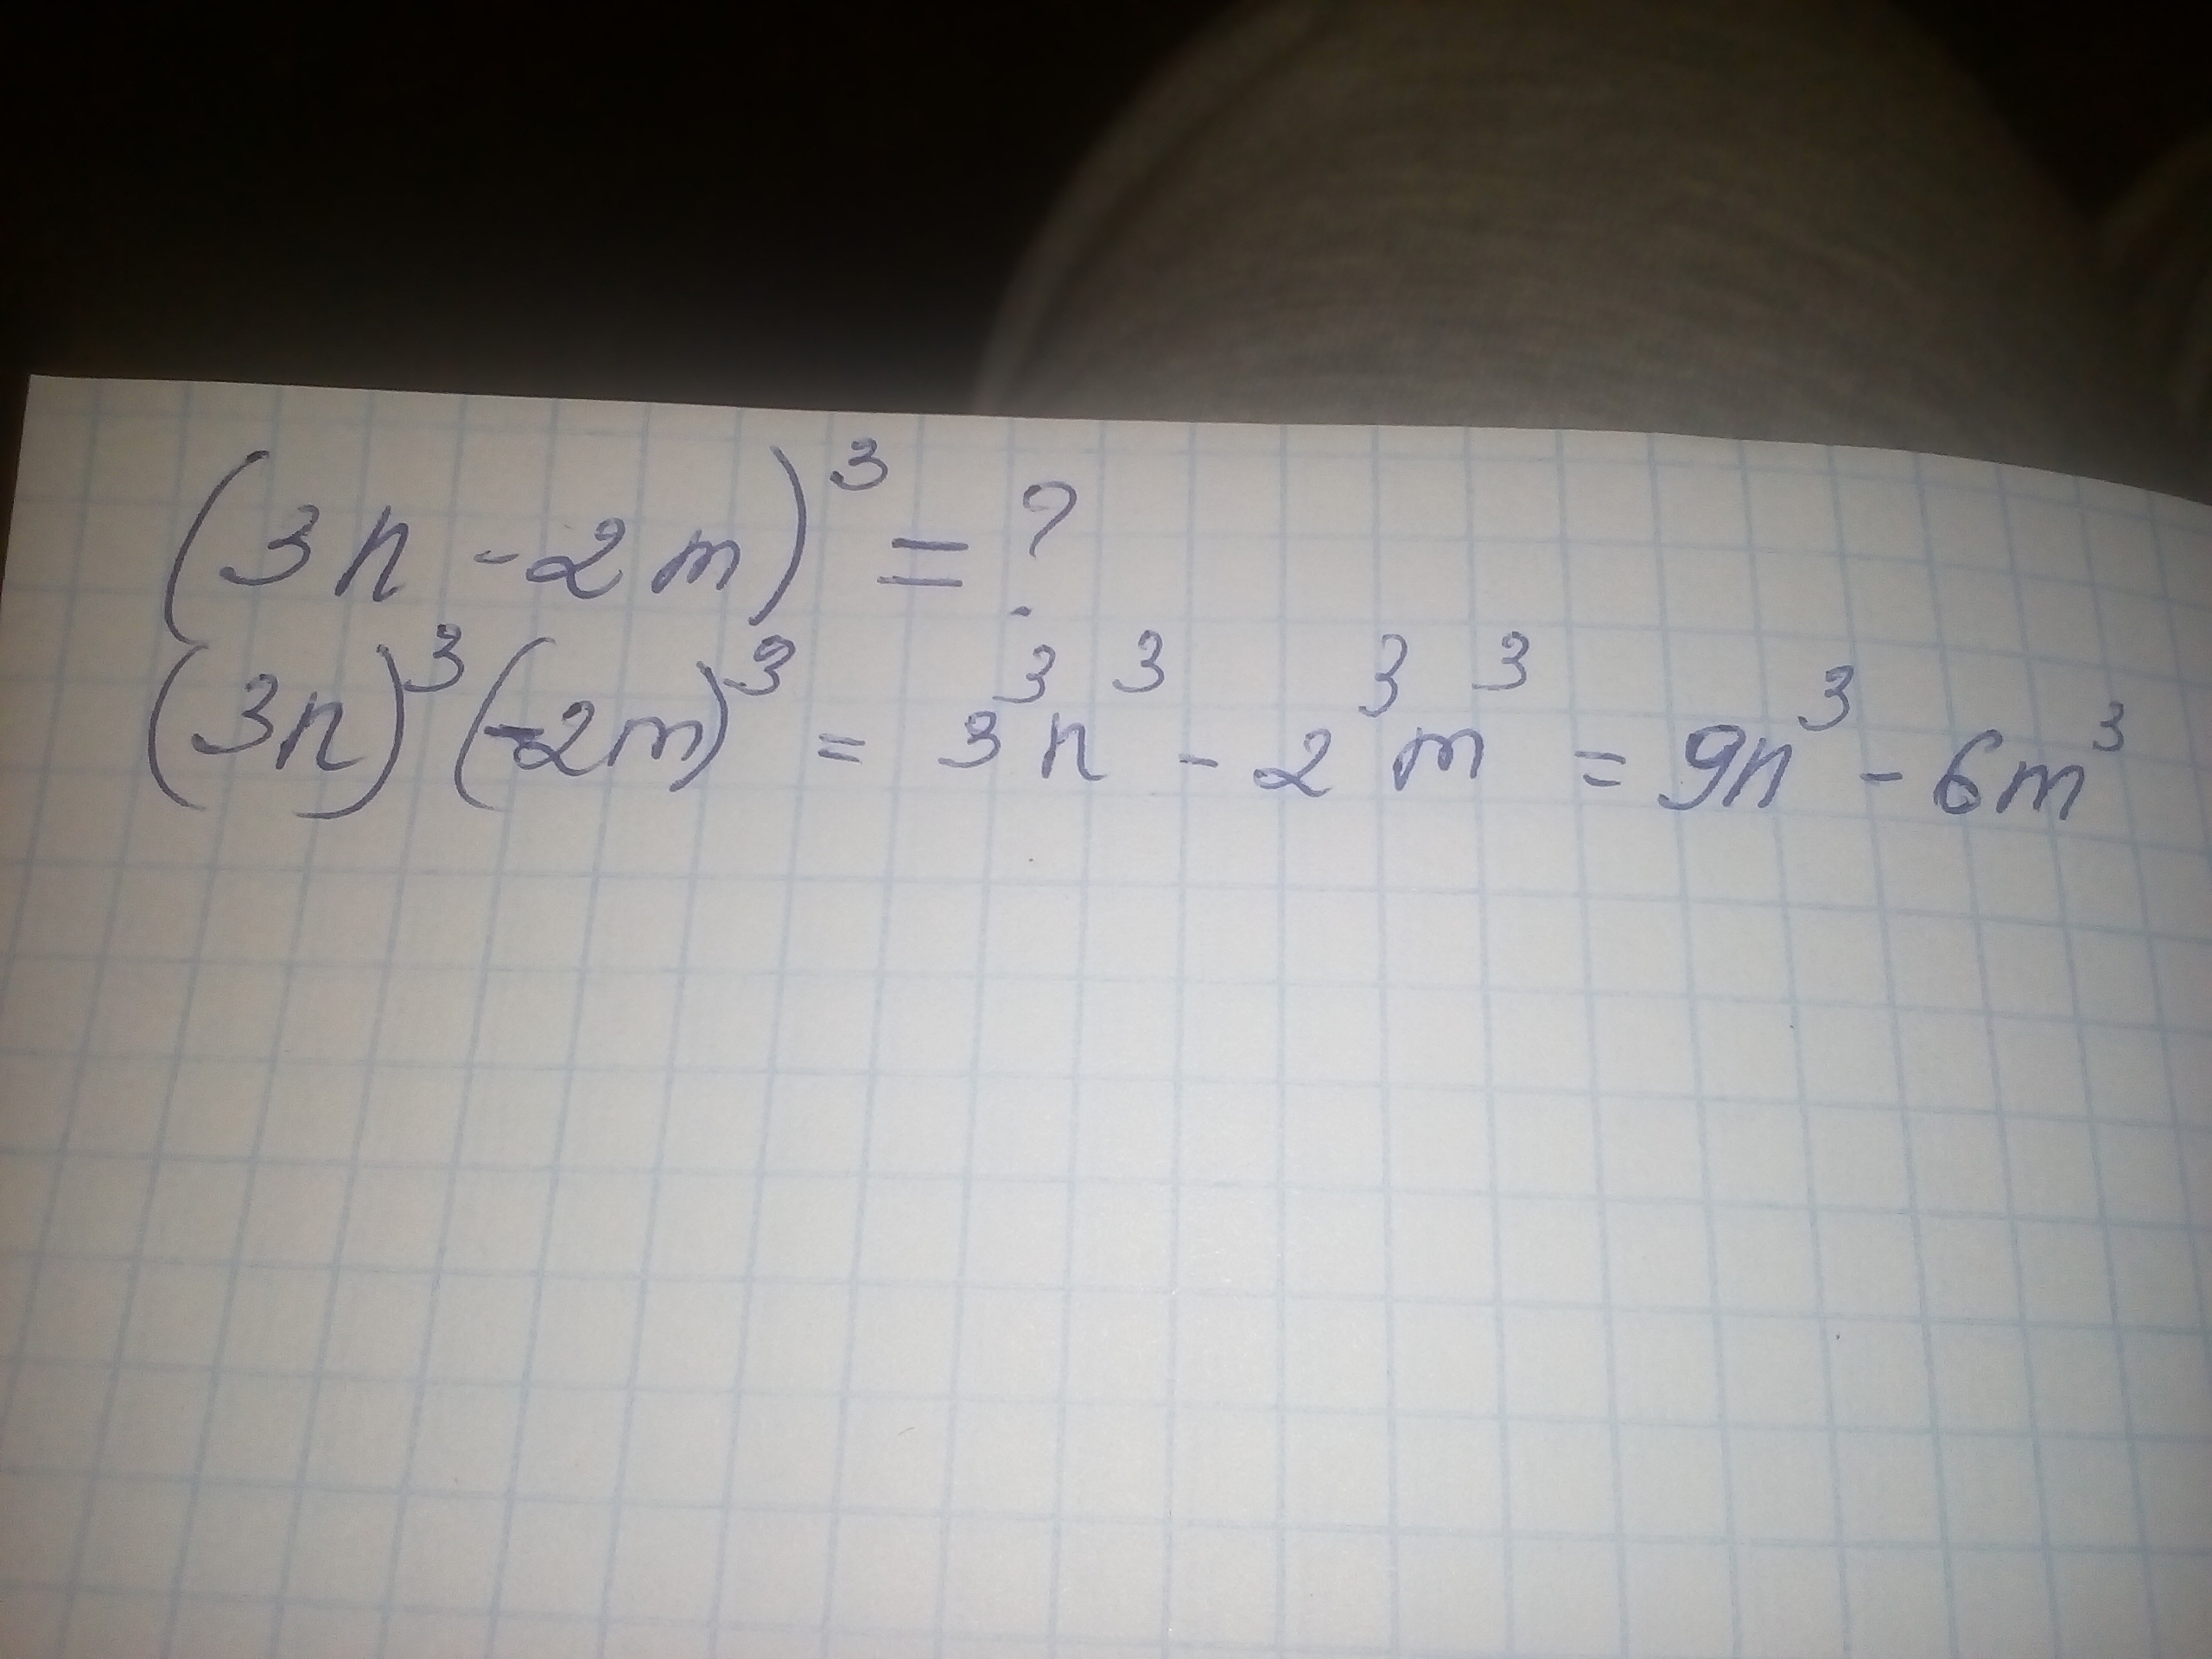 (3n - 2m)³ = ?
(3n)³(-2m)³ = 3³n³ - 2³m³ = 9n³ - 6m³